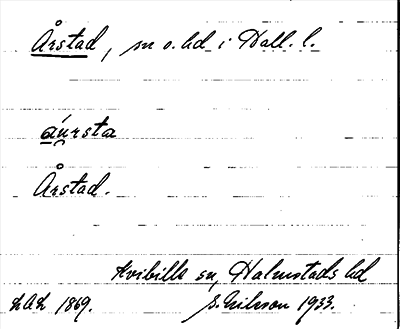 Årstad, sn o. hd i Hall. l.
aúrsta
Årstad.
Kvibille sn, Halmstads hd
1869. 1933